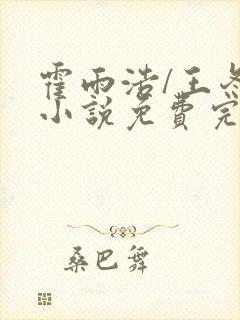 霍雨浩/王冬
小说免费完
桑巴舞